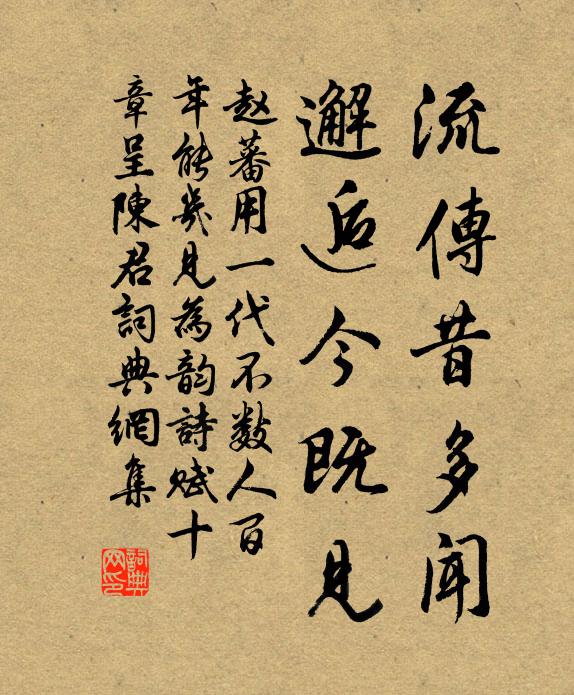 流傳昔多聞
邂逅今既見
赵蕃用一代不数人百
年能幾見為韵詩赋十
章呈陳君詞典網集
詞典网印